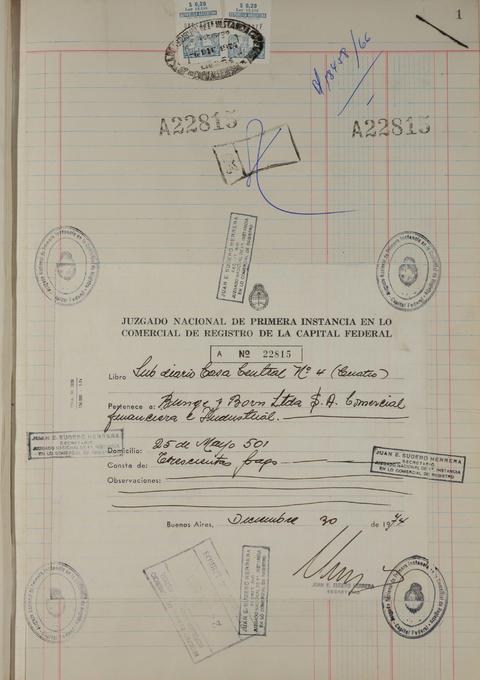 $ 0,20
$ 0,20
1
A22815
A22815
JUAN E. SUGERO HERRERA
JUZGADO NACIONAL DE 1ª INSTANCIA
EN LO COMERCIAL DE REGISTRO
JUZGADO NACIONAL DE PRIMERA INSTANCIA EN LO
COMERCIAL DE REGISTRO DE LA CAPITAL FEDERAL
A Nº 22815
Libro Sub diario Casa Central Nº 4 (Cuatro)
Pertenece a: Bunge y Born Ltda S. A. Comercial
financiera e Industrial.
JUAN E. SUGERO HERRERA
SECRETARIO
JUZGADO NACIONAL DE 1ª INSTANCIA
EN LO COMERCIAL DE REGISTRO
Domicilio: 25 de Mayo 501
Consta de: Trescientas fojas
JUAN E. SUGERO HERRERA
SECRETARIO
JUZGADO NACIONAL DE 1ª INSTANCIA
EN LO COMERCIAL DE REGISTRO
Observaciones:
Buenos Aires, Diciembre 30 de 1974
JUAN E. SUGERO HERRERA
JUAN E. SUGERO HERRERA